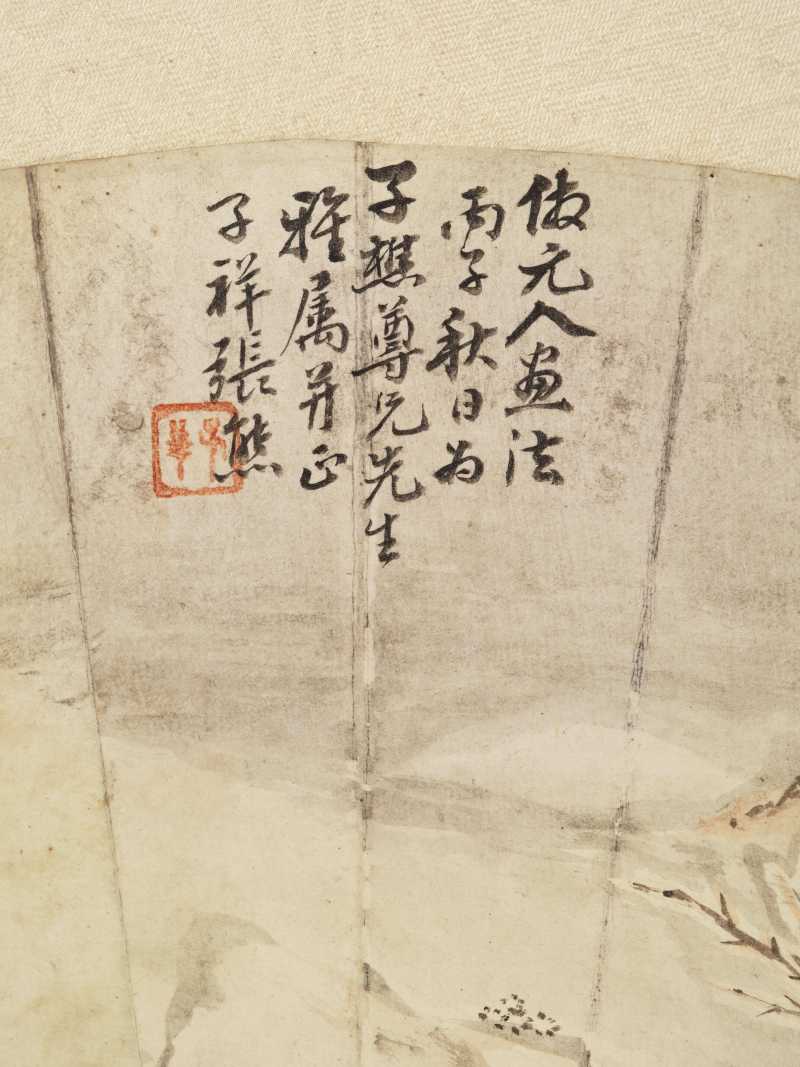 倣元人画法
丙子秋日为
子樵尊兄先生
雅属并正
子祥張熊